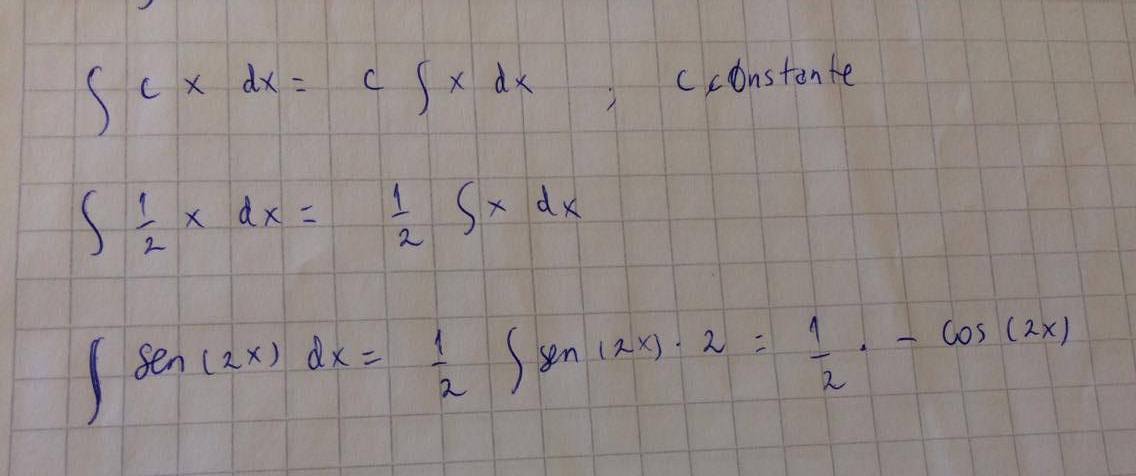 ∫ c x dx = c ∫ x dx ; c constante
∫ 1/2 x dx = 1/2 ∫ x dx
∫ sen (2x) dx = 1/2 ∫ sen (2x) · 2 = 1/2 · - cos (2x)